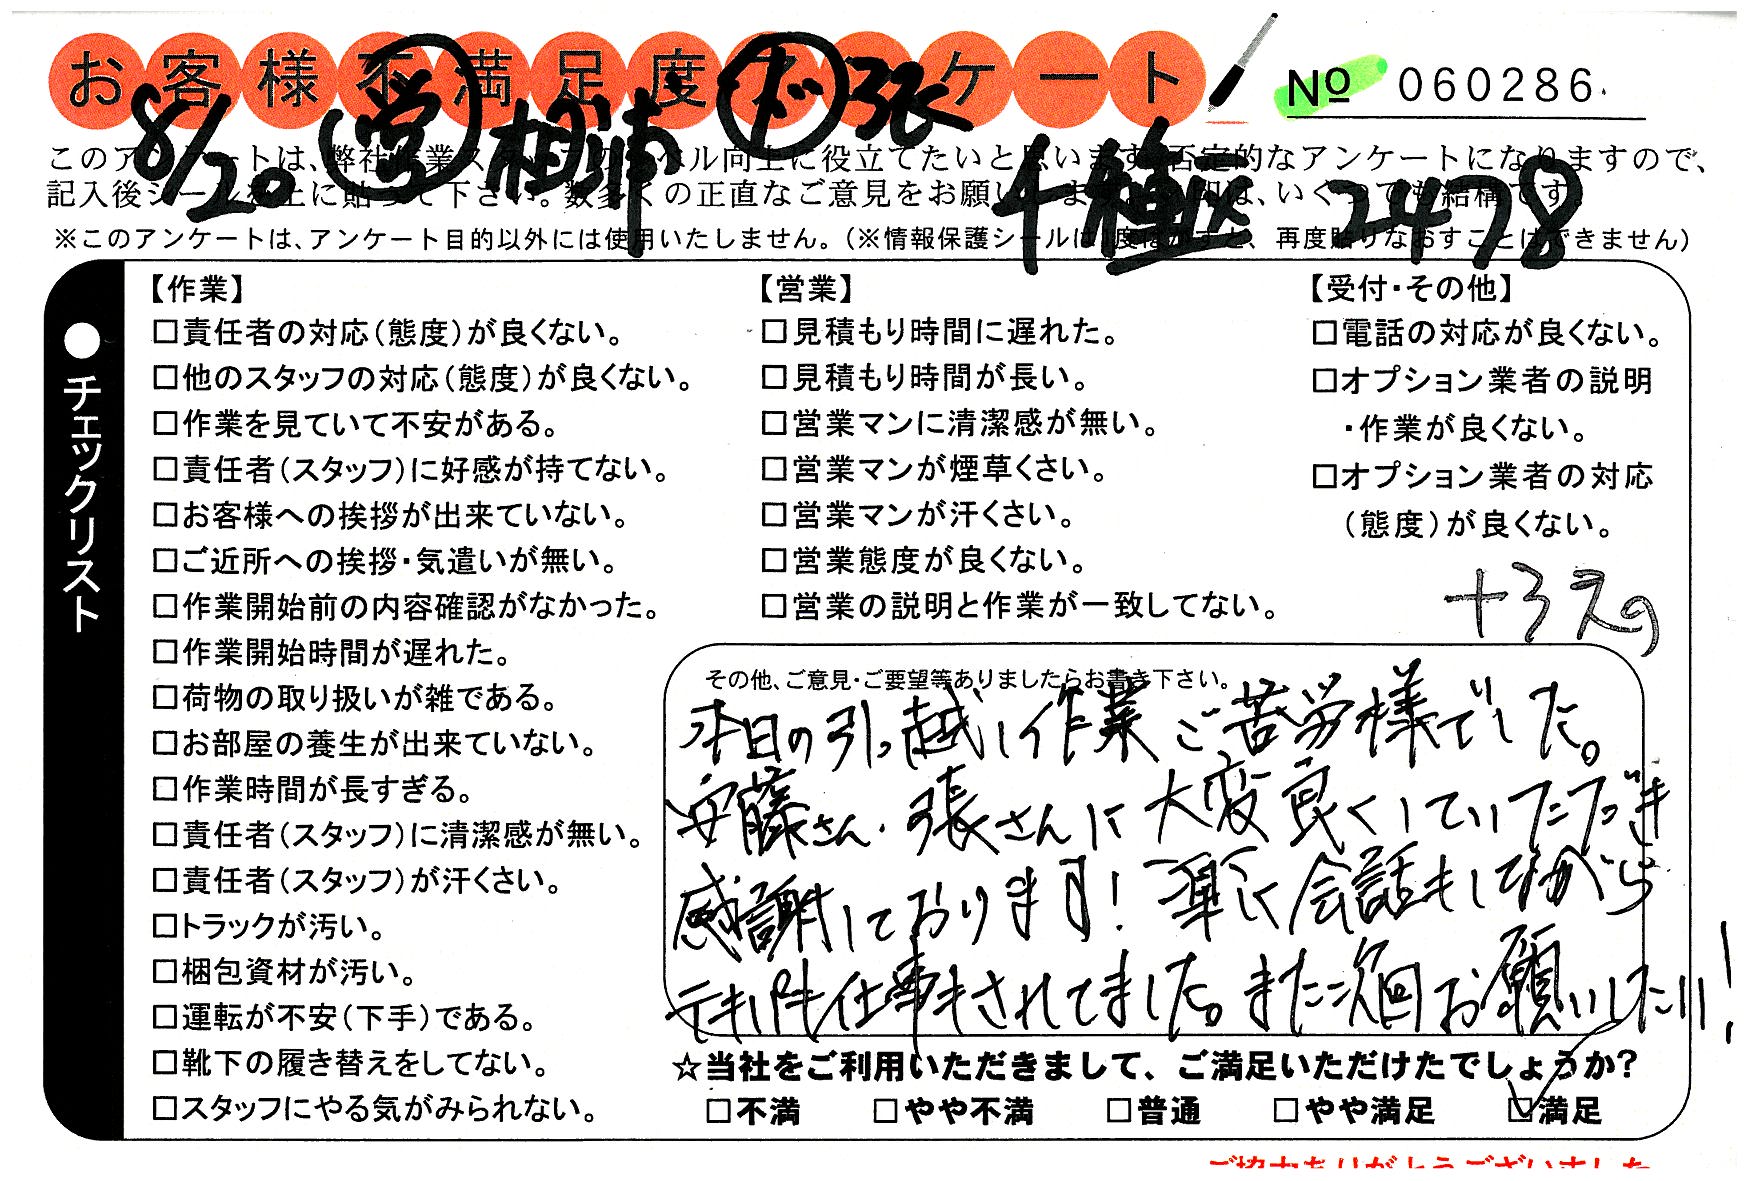 お客様不満足度アンケート
No 060286
8/20 営 相浦 ド 張
千種区 2478
このアンケートは、弊社作業スタッフのレベル向上に役立てたいと思います。否定的なアンケートになりますので、
記入後シールを上に貼って下さい。数多くの正直なご意見をお願いします。質問は、いくつでも結構です。
※このアンケートは、アンケート目的以外には使用いたしません。(※情報保護シールは1度はがすと、再度貼りなおすことはできません)
●チェックリスト
【作業】
□責任者の対応(態度)が良くない。
□他のスタッフの対応(態度)が良くない。
□作業を見ていて不安がある。
□責任者(スタッフ)に好感が持てない。
□お客様への挨拶が出来ていない。
□ご近所への挨拶・気遣いが無い。
□作業開始前の内容確認がなかった。
□作業開始時間が遅れた。
□荷物の取り扱いが雑である。
□お部屋の養生が出来ていない。
□作業時間が長すぎる。
□責任者(スタッフ)に清潔感が無い。
□責任者(スタッフ)が汗くさい。
□トラックが汚い。
□梱包資材が汚い。
□運転が不安(下手)である。
□靴下の履き替えをしてない。
□スタッフにやる気がみられない。
【営業】
□見積もり時間に遅れた。
□見積もり時間が長い。
□営業マンに清潔感が無い。
□営業マンが煙草くさい。
□営業マンが汗くさい。
□営業態度が良くない。
□営業の説明と作業が一致してない。
【受付・その他】
□電話の対応が良くない。
□オプション業者の説明
・作業が良くない。
□オプション業者の対応
(態度)が良くない。
その他、ご意見・ご要望等ありましたらお書き下さい。
本日の引っ越し作業ご苦労様でした。
安藤さん・張さんに大変良くしていただき
感謝しております! 一緒に会話もしながら
テキパキ仕事もされてました。また次回お願いしたい!
☆当社をご利用いただきまして、ご満足いただけたでしょうか?
□不満 □やや不満 □普通 □やや満足 ☑満足
ご協力ありがとうございました